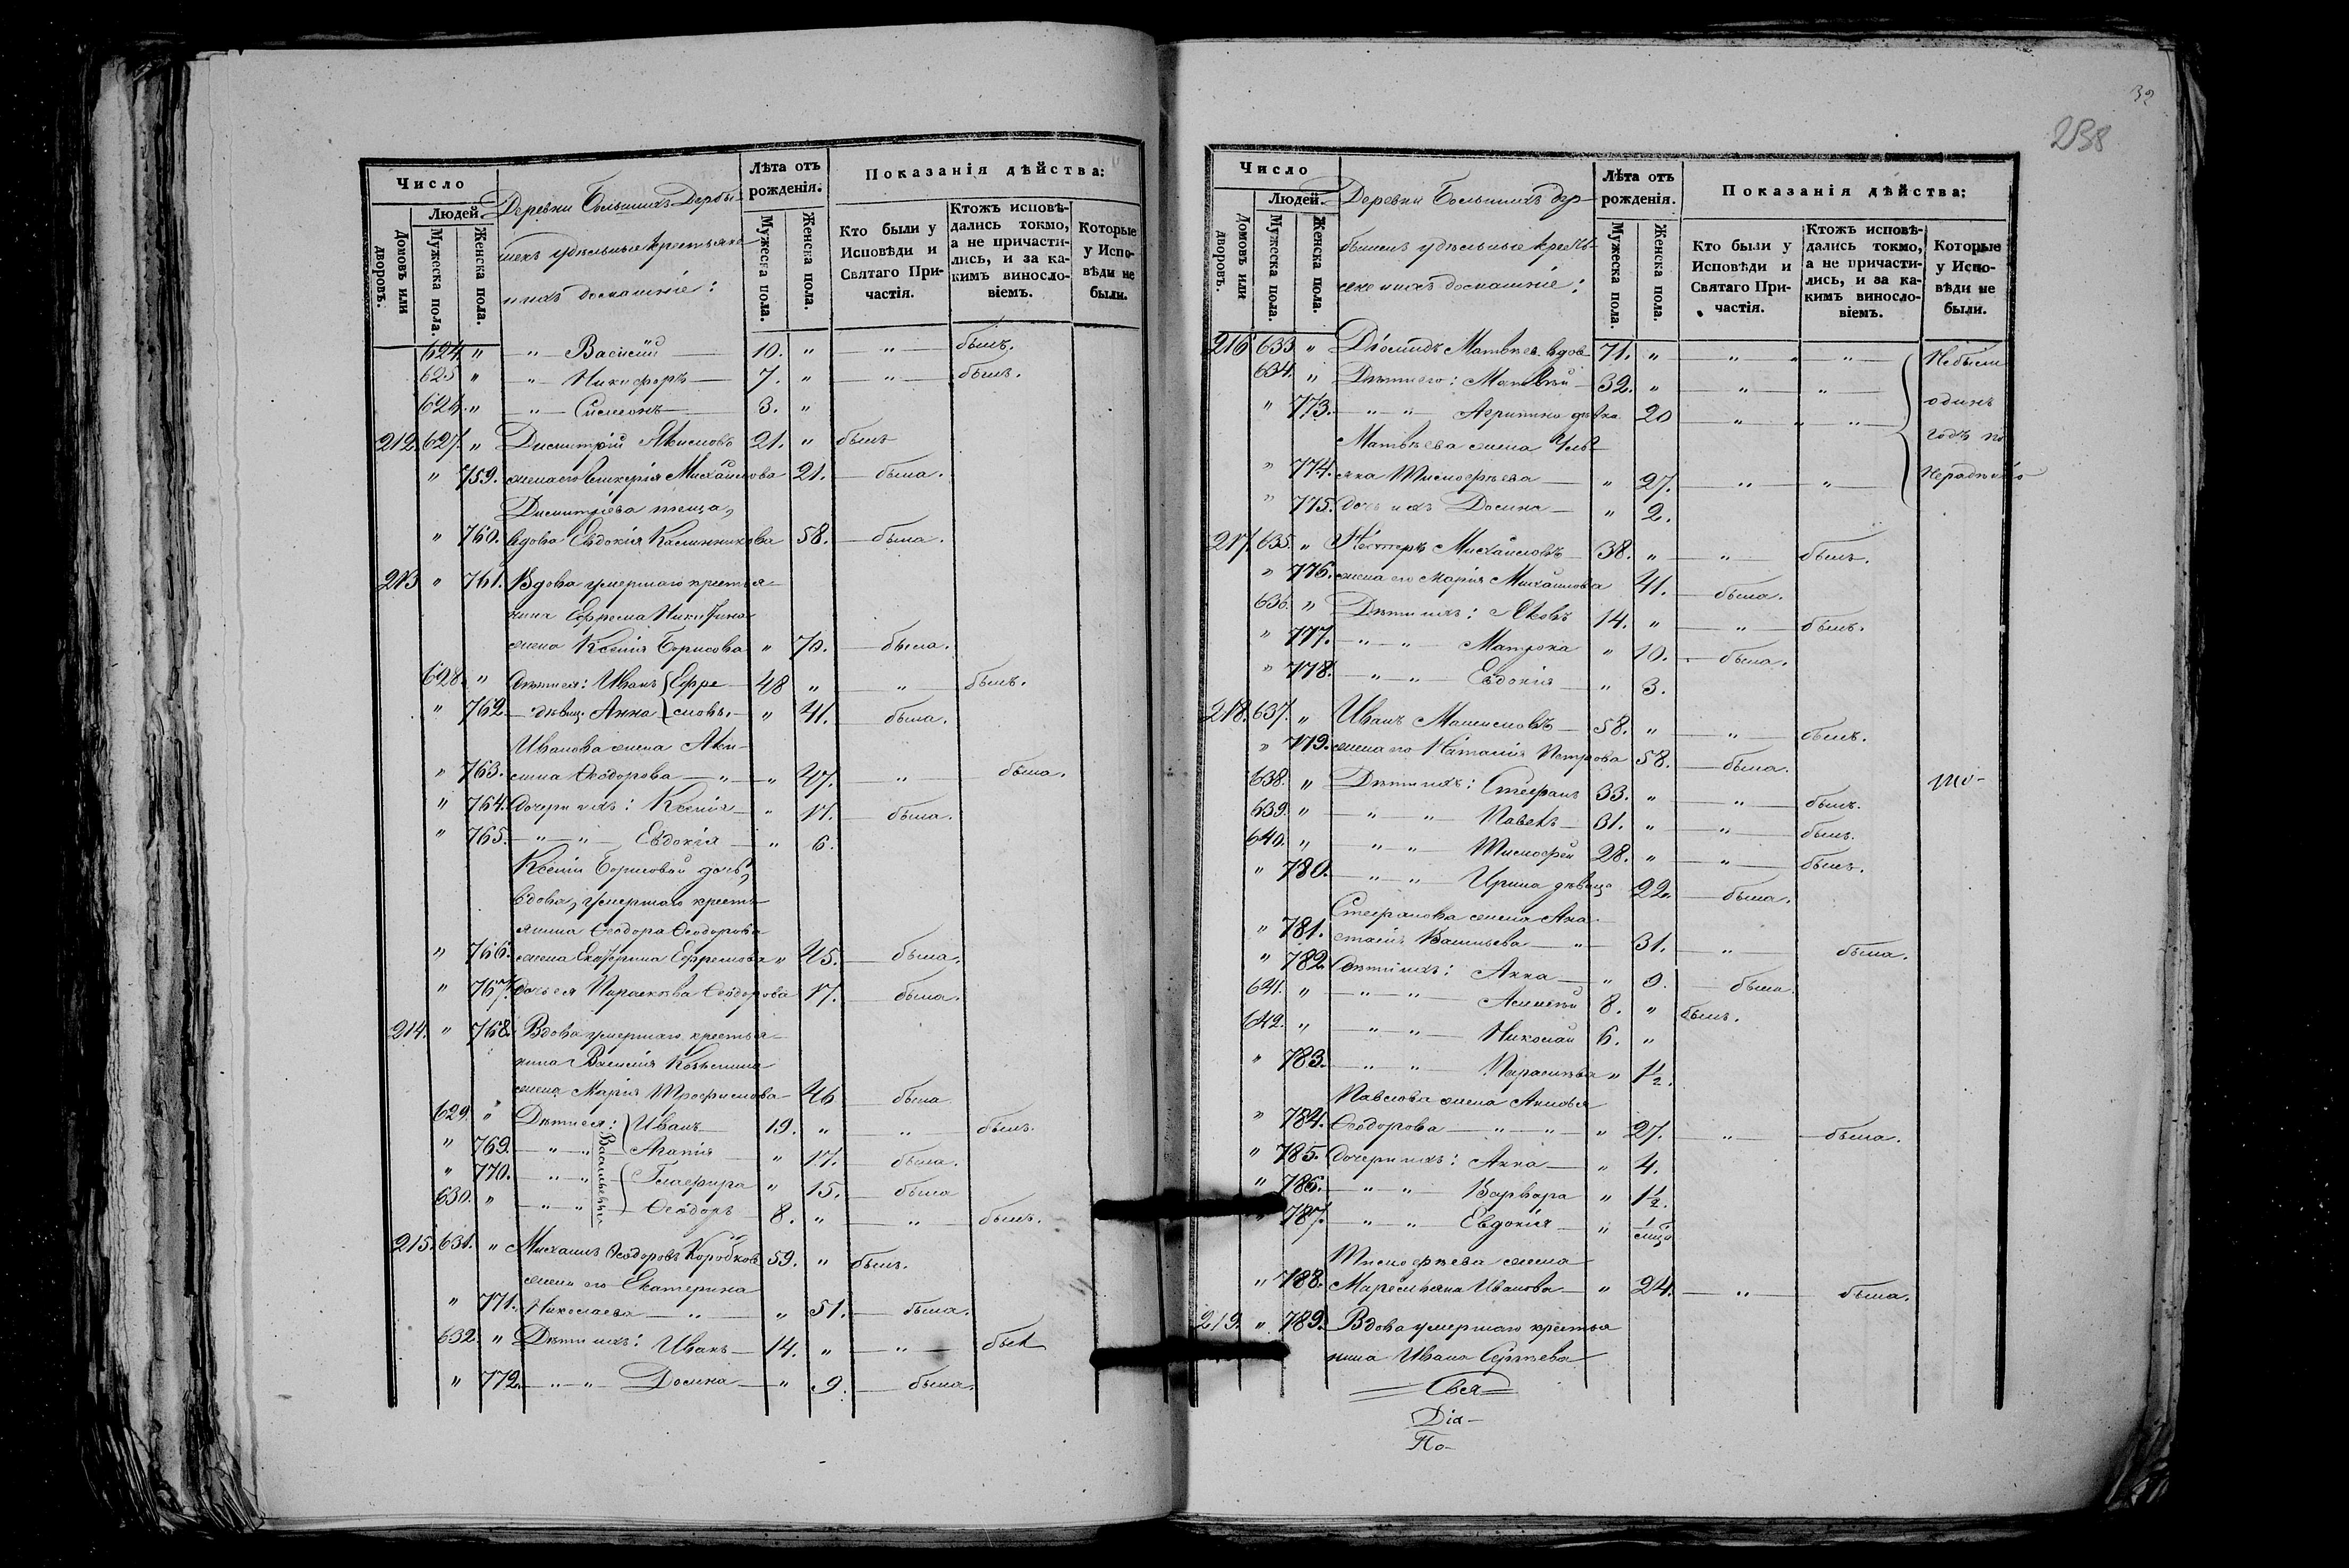 Число
Людей.
Домовъ или дворовъ.
Мужеска пола.
Женска пола.
Деревни Большихъ Дербы-
шекъ удѣльные крестьяне
и ихъ домашніе:
Лѣта отъ рожденія.
Мужеска пола.
Женска пола.
Показанія дѣйства:
Кто были у Исповѣди и Святаго Причастія.
Ктожъ исповѣдались токмо, а не причастились, и за какимъ винословіемъ.
Которые у Исповѣди не были.
624. " — " — Василій — 10. " — " — былъ.
625 " — " — Никифоръ — 7. " — " — былъ.
624. " — " — Симеонъ — 3. "
212. 627. " Димитрій Акимовъ 21. " былъ
" 759. жена его Гликерія Михайлова 21. — была.
Димитріева теща,
" 760. вдова Евдокія Калинникова 58. — была.
213 " 761. Вдова умершаго крестья-
нина Ефрема Никитина
жена Ксенія Борисова " 70. — была.
628. " Дѣти ея: Иванъ } Ефре- 48 " — " — былъ.
" 762. — дѣвиц. Анна } мовы. — " 41. — была.
Иванова жена Аку-
" 763. лина Ѳеодорова — " — " 47. — " — была.
" 764. Дочери ихъ: Ксенія — " 17. — была.
" 765. — " — " — Евдокія — " 6.
Ксеніи Борисовой дочь,
вдова, умершаго кресть-
янина Ѳеодора Ѳеодорова
" 766. жена Екатерина Ефремова " 45. — была.
" 767. Дочь ея Параскева Ѳеодорова 17. — была.
214. " 768. Вдова умершаго крестья-
нина Василія Козьмина
жена Марія Трофимова — 46 — была
629. " Дѣти ея: Иванъ — 19. " — " — былъ.
Васильевы
" 769. — " — " — Агапія — " 17. — была.
" 770. — " — " — Глафира — " 15. — была
630. " — " — " — Ѳеодоръ — 8. " — " — былъ.
215. 631. " Михаилъ Ѳеодоровъ Коробковъ 59. " былъ.
жена его Екатерина
" 771. Николаева — " — " 51. — была.
632. " Дѣти ихъ: Иванъ — 14. " — " — былъ
" 772. — " — " — Домна — " 9. — была.
32
238
Число
Людей.
Домовъ или дворовъ.
Мужеска пола.
Женска пола.
Деревни Большихъ Дер-
бышекъ удѣльные кресть-
яне и ихъ домашніе:
Лѣта отъ рожденія.
Мужеска пола.
Женска пола.
Показанія дѣйства:
Кто были у Исповѣди и Святаго Причастія.
Ктожъ исповѣдались токмо, а не причастились, и за какимъ винословіемъ.
Которые у Исповѣди не были.
216 633 " Діомидъ Матвѣев. вдов. 71. " — " — " — " — Не были
634. " Дѣти его: Матвѣй — 32. " — " — " — одинъ
" 773. — " — " — Агрипина дѣвка 20 — " — " — " — годъ по
Матвѣева жена Улі-
" 774. яна Тимофѣева — " 27. — " — " — нерадѣнію
" 775. дочь ихъ Домна — " 2.
217. 635. " Несторъ Михайловъ — 38. " — " — былъ.
" 776. жена его Марія Михайлова 41. — была.
636. " Дѣти ихъ: Яковъ 14. " — " — былъ.
" 777. — " — " — Матрона " 10. — была.
" 778. — " — " — Евдокія — " 3.
218. 637. " Иванъ Мануиловъ — 58. " — " — былъ.
" 779. жена его Наталія Петрова 58. — была.
638. " Дѣти ихъ: Стефанъ 33. " — " — былъ.
639. " — " — " — Павелъ — 31. " — " — былъ.
640. " — " — " — Тимофей 28. " — " — былъ.
" 780. — " — " — Ирина дѣвица 22. — была.
Стефанова жена Ана-
" 781. стасія Васильева — " — 31. — " — была.
" 782. Дѣти ихъ: Анна — " 9. — была.
641. " — " — " — Алексѣй 8. " былъ.
642. " — " — " — Николай 6. "
" 783. — " — " — Параскева " 1½.
Павлова жена Акилина
" 784. Ѳеодорова — " — " — " 27. — " — была.
" 785. Дочери ихъ: Анна — " 4.
" 786. — " — " — Варвара " 1½.
" 787. — " — " — Евдокія — " 1 мца
Тимофѣева жена
" 788. Маремьяна Иванова — " 24. — " — была.
219. " 789. Вдова умершаго крестья
нина Ивана Сергѣева
Свя
Діа-
По-